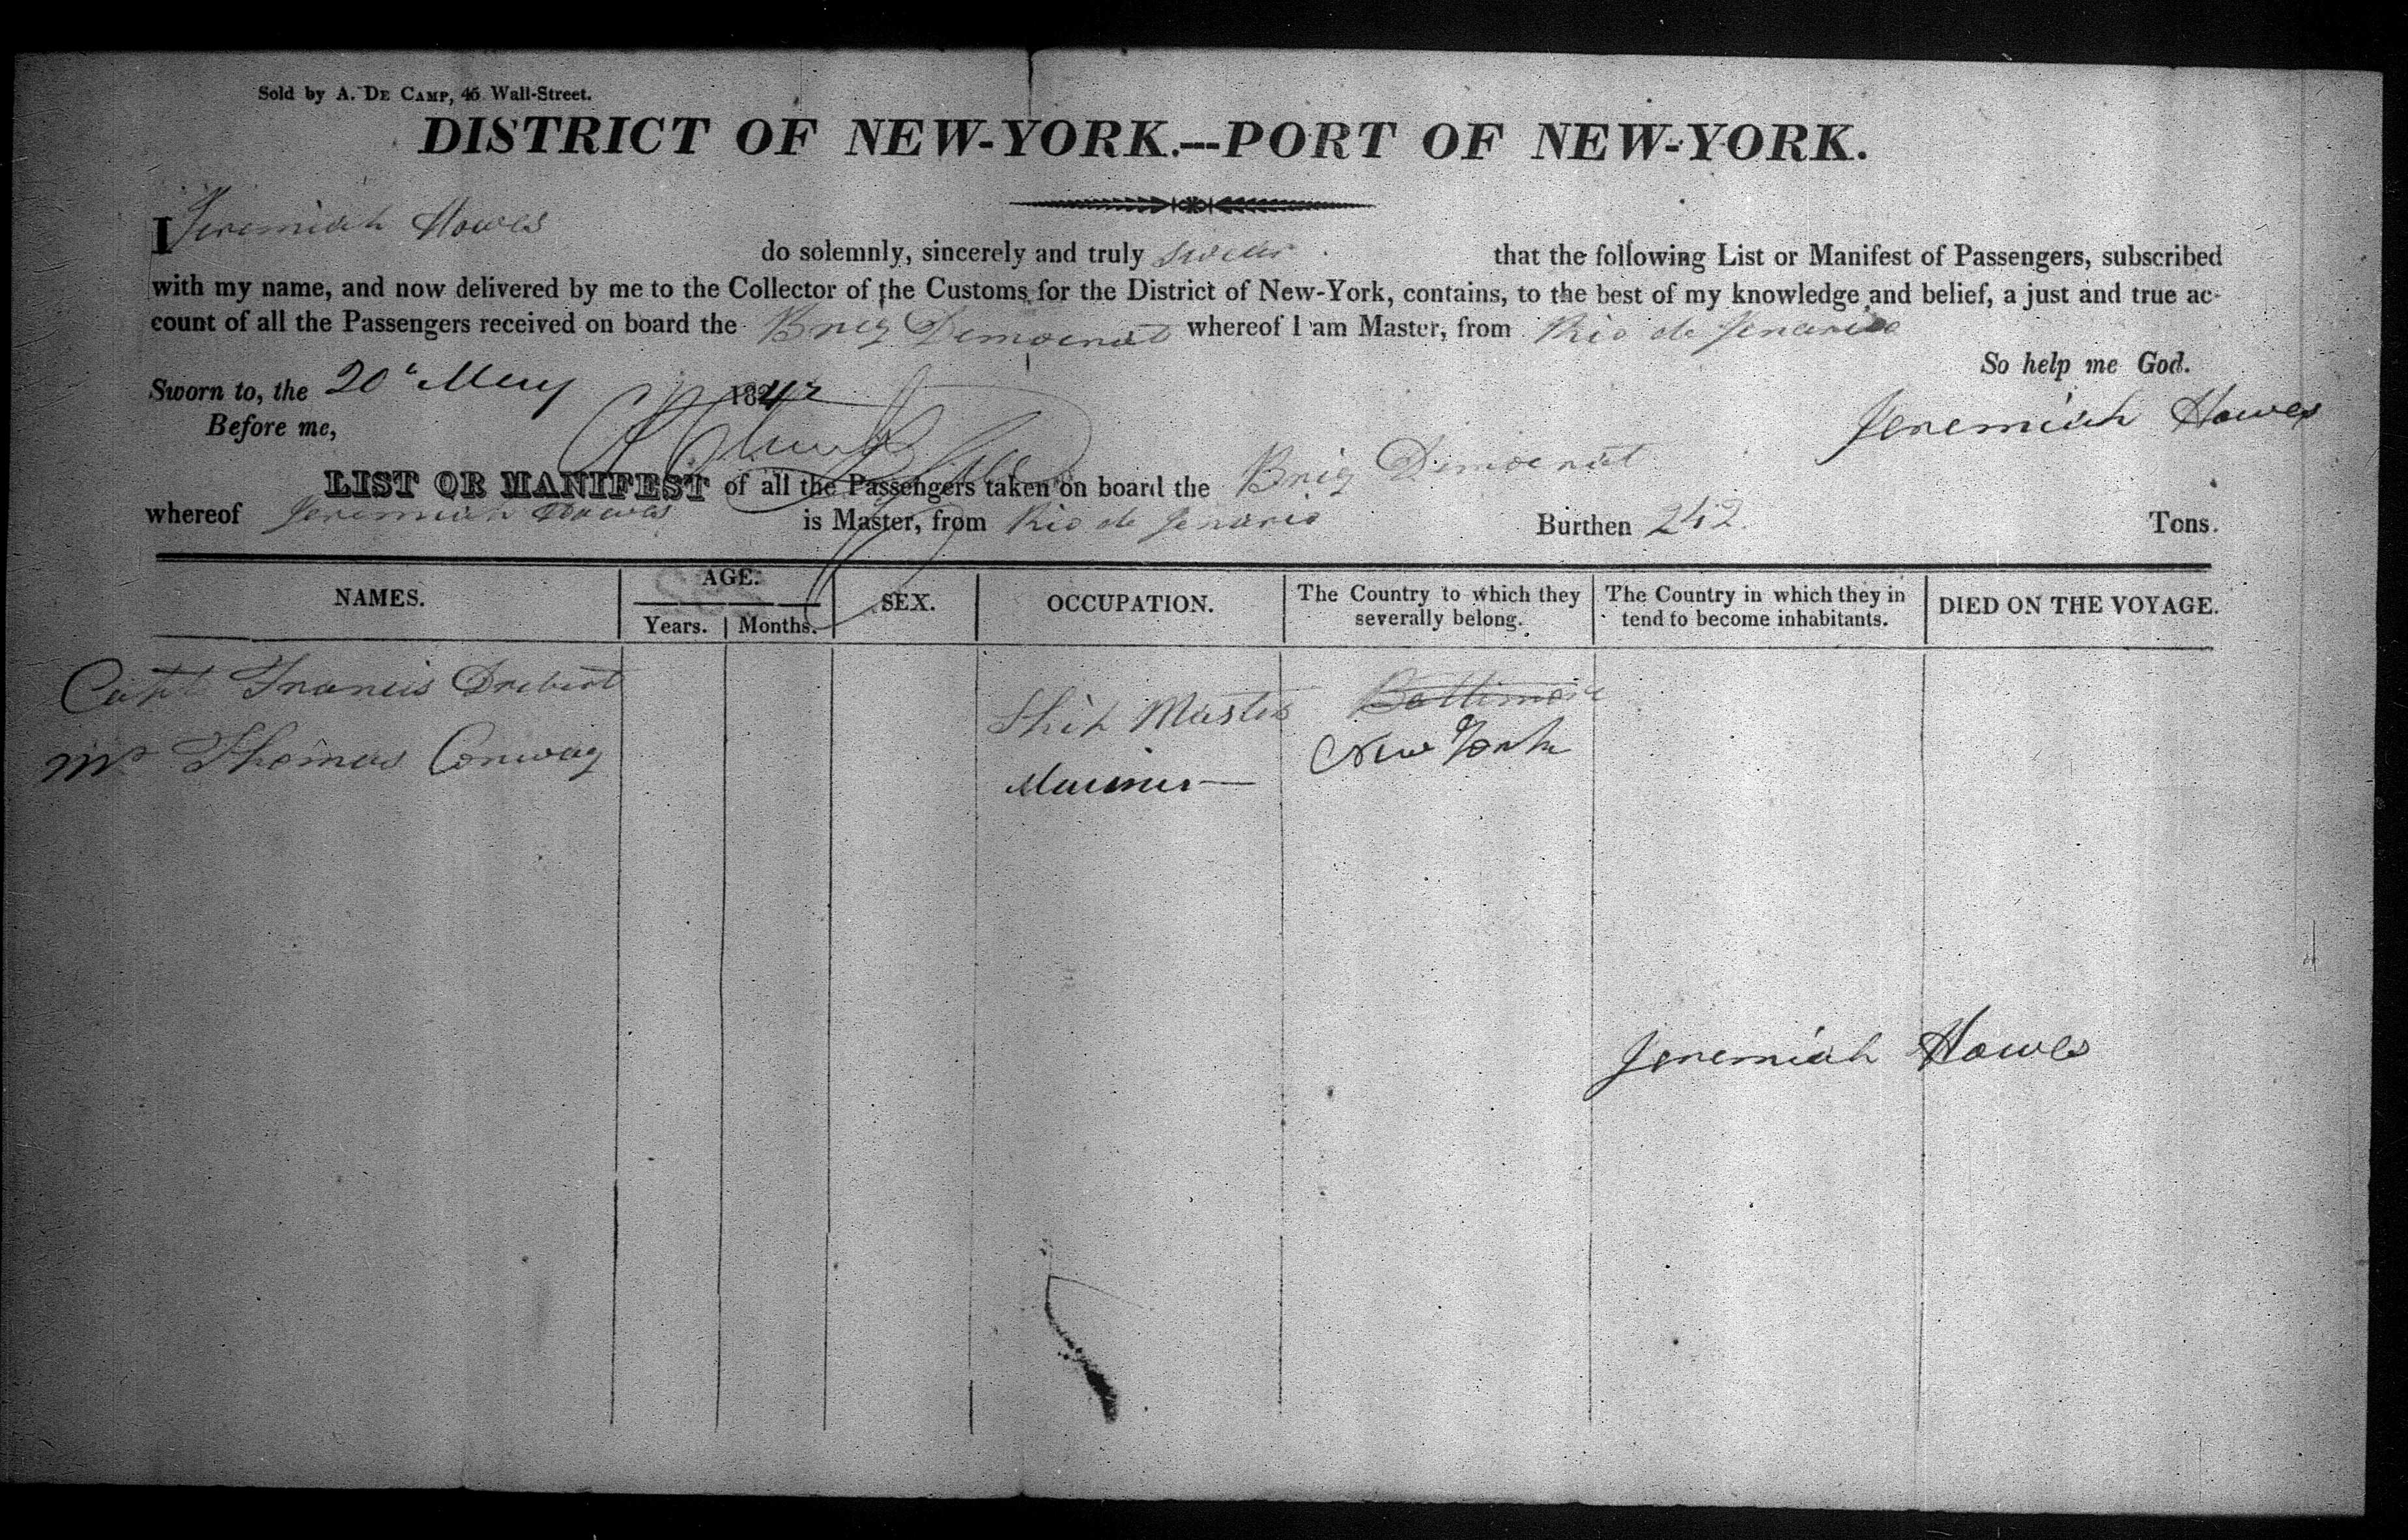 Sold by A. DE CAMP, 46 Wall-Street.
DISTRICT OF NEW-YORK.—PORT OF NEW-YORK.
I Jeremiah Howes do solemnly, sincerely and truly swear that the following List or Manifest of Passengers, subscribed
with my name, and now delivered by me to the Collector of the Customs for the District of New-York, contains, to the best of my knowledge and belief, a just and true ac-
count of all the Passengers received on board the Brig Democrat whereof I am Master, from Rio de Jenario
So help me God.
Sworn to, the 20th May 182
Before me,
Jeremiah Howes
LIST OR MANIFEST of all the Passengers taken on board the Brig Democrat
whereof Jeremiah Howes is Master, from Rio de Jenario Burthen 242 Tons.
NAMES. AGE. SEX. OCCUPATION. The Country to which they severally belong. The Country in which they in tend to become inhabitants. DIED ON THE VOYAGE.
Years. Months.
Capt Francis Ship Master Baltimore
Mr Thomas Conway Mariner New York
Jeremiah Howes